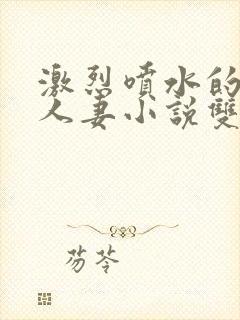 激烈噴水的
人妻小說雙
芴芩